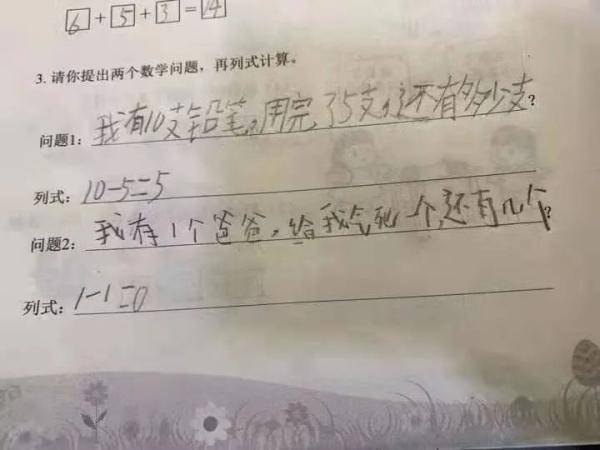 6 + 5 + 3 = 14
3. 请你提出两个数学问题，再列式计算。
问题1：我有10支铅笔，用完了5支，还有多少支？
列式：10-5=5
问题2：我有1个爸爸，给我气死一个，还有几个？
列式：1-1=0